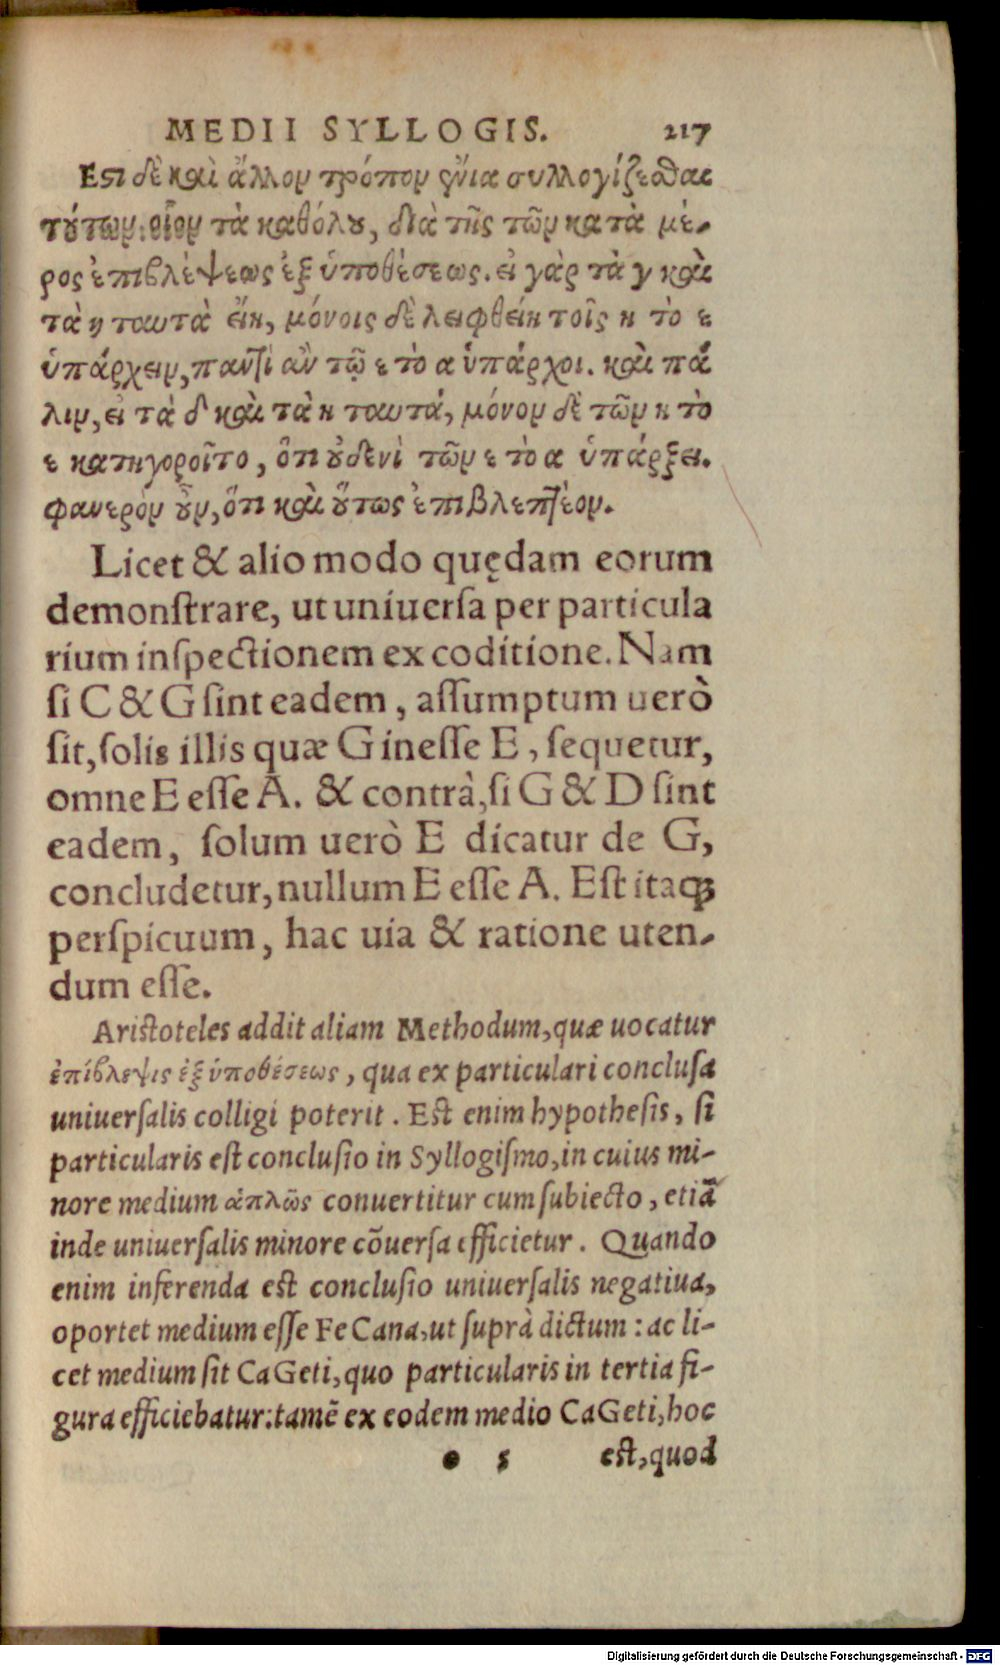 MEDII SYLLOGIS. 217
Ἔστι δὲ καὶ ἄλλον τρόπον ἔνια συλλογίζεσθαι
τούτων: οἷον τὰ καθόλου, διὰ τῆς τῶν κατὰ μέ-
ρος ἐπιβλέψεως ἐξ ὑποθέσεως. εἰ γὰρ τὰ γ καὶ
τὰ η ταυτὰ εἴη, μόνοις δὲ λειφθείη τοῖς η τὸ ε
ὑπάρχειν, παντὶ ἂν τῷ ε τὸ α ὑπάρχοι. καὶ πά
λιν, εἰ τὰ δ καὶ τὰ η ταυτά, μόνον δὲ τῶν η τὸ
ε κατηγοροῖτο, ὅτι οὐδενὶ τῶν ε τὸ α ὑπάρξει.
φανερὸν οὖν, ὅτι καὶ οὕτως ἐπιβλεπτέον.
Licet & alio modo quędam eorum
demonſtrare, ut uniuerſa per particula
rium inſpectionem ex coditione. Nam
ſi C & G ſint eadem, aſſumptum uerò
ſit, ſolis illis quæ G ineſſe E, ſequetur,
omne E eſſe A. & contrà, ſi G & D ſint
eadem, ſolum uerò E dicatur de G,
concludetur, nullum E eſſe A. Eſt itaqꝫ
perſpicuum, hac uia & ratione uten-
dum eſſe.
Ariſtoteles addit aliam Methodum, quæ uocatur
ἐπίβλεψις ἐξ ὑποθέσεως, qua ex particulari concluſa
uniuerſalis colligi poterit. Eſt enim hypotheſis, ſi
particularis eſt concluſio in Syllogiſmo, in cuius mi-
nore medium ἁπλῶς conuertitur cum ſubiecto, etiã
inde uniuerſalis minore cõuerſa efficietur. Quando
enim inferenda eſt concluſio uniuerſalis negatiua,
oportet medium eſſe FeCana, ut ſuprà dictum: ac li-
cet medium ſit CaGeti, quo particularis in tertia fi-
gura efficiebatur: tamẽ ex eodem medio CaGeti, hoc
o 5 eſt, quod
Digitalisierung gefördert durch die Deutsche Forschungsgemeinschaft - DFG